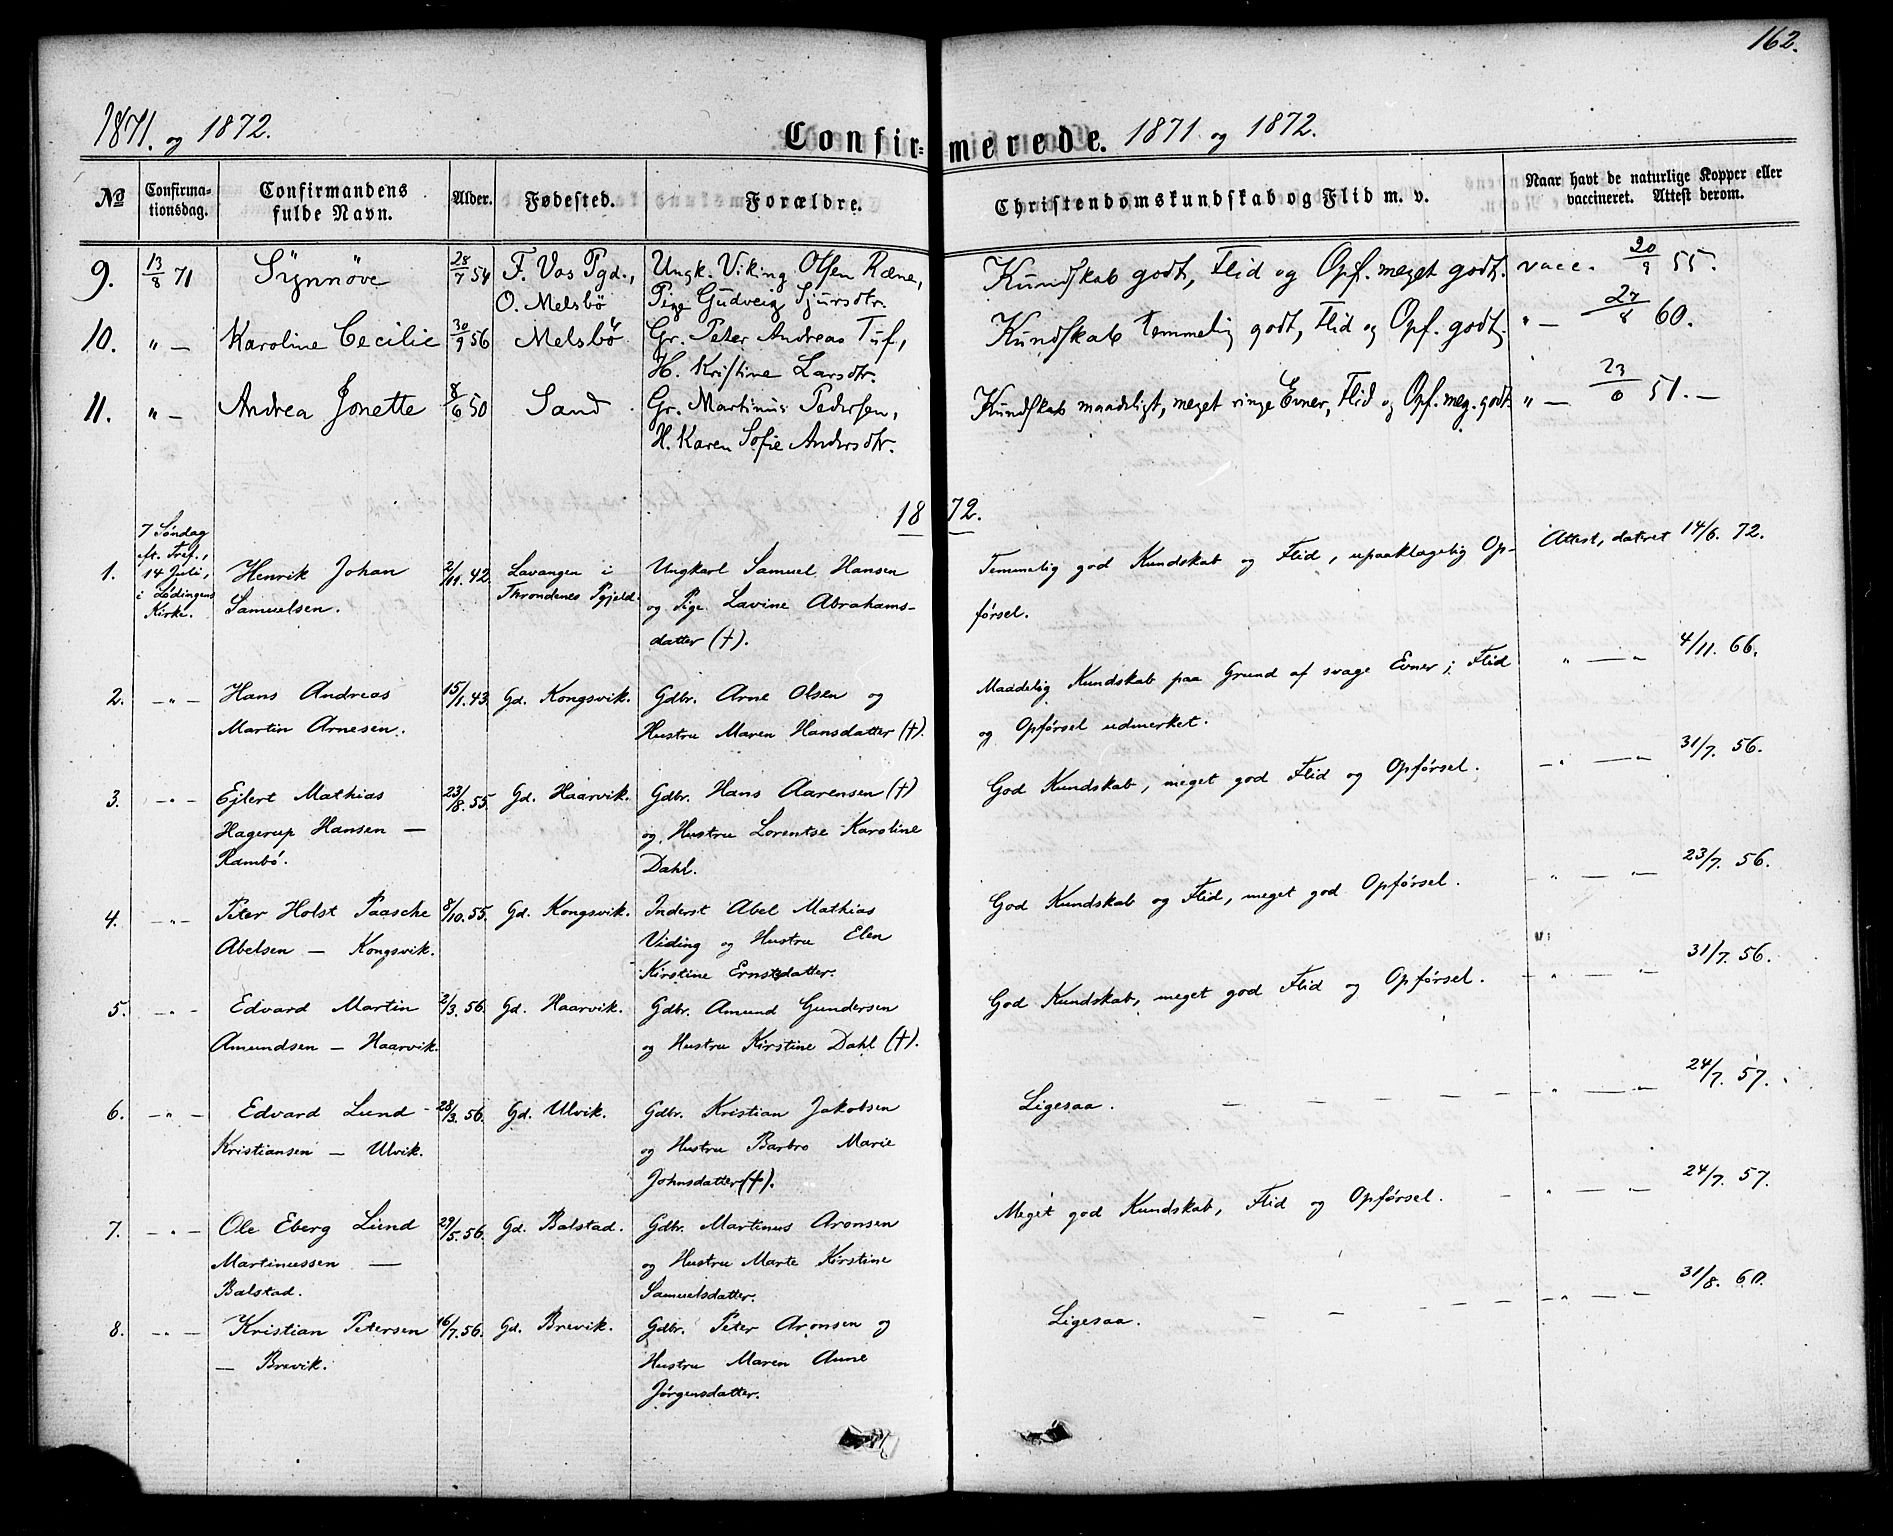 162.
1871. og 1872.
Confirmerede. 1871 og 1872.
No
Confirma-
tionsdag.
Confirmandens
fulde Navn.
Alder.
Fødested.
Forældre.
Christendomskundskab og Flid m. v.
Naar havt de naturlige Kopper eller
vaccineret. Attest derom.
9. 13/8 71 Synnøve 28/7 54 F. Vos Pgd., Ungk. Viking Olsen Ræne, Kundskab godt, Flid og Opf. meget godt. vacc. 20/9 55.
O. Melsbö Pige Gudveig Sjursdtr.
10. " — Karoline Cecilie 30/9 56 Melsbö Gr. Peter Andreas Tuf, Kundskab temmelig godt, Flid og Opf. godt. " — 27/8 60.
H. Kristine Larsdtr.
11. " — Andrea Jonette 8/6 50 Sand Gr. Martinus Pedersen, Kundskab maadeligt, meget ringe Evner, Flid og Opf. meg. godt. " — 23/6 51. —
H. Karen Sofie Andersdtr.
1872.
7 Søndag
eft. Tref.,
1. 14 Juli, Henrik Johan 2/11. 42. Lavangen i Ungkarl Samuel Hansen Temmelig god Kundskab og Flid, upaaklagelig Op- Attest, dateret 14/6. 72.
i Lødingens Samuelsen. Throndenes Pgjeld. og Pige Lavine Abrahams- førsel.
Kirke. datter (†).
2. — " — Hans Andreas 15/1. 43. Gd. Kongsvik. Gdbr. Arne Olsen og Maadelig Kundskab paa Grund af svage Evner; Flid " — " 4/11. 66.
Martin Arnesen. Hustru Maren Hansdatter (†). og Opførsel udmerket.
3. — " — Ejlert Mathias 23/8. 55. Gd. Haarvik. Gdbr. Hans Aarensen (†) God Kundskab, meget god Flid og Opførsel. — " — " — 31/7. 56.
Hagerup Hansen — og Hustru Lorentse Karoline
Rambö. Dahl.
4. — " — Peter Holst Paasche 8/10. 55. Gd. Kongsvik. Inderst Abel Mathias God Kundskab og Flid, meget god Opførsel. — " — " — 23/7. 56.
Abelsen — Kongsvik. Viding og Hustru Elen
Kirstine Ernstsdatter.
5. — " — Edvard Martin 2/3. 56. Gd. Haarvik. Gdbr. Amund Gundersen God Kundskab, meget god Flid og Opførsel. — " — " — 31/7. 56.
Amundsen — Haarvik. og Hustru Kirstine Dahl (†).
6. — " — Edvard Lund 28/3. 56. Gd. Ulvik. Gdbr. Kristian Jakobsen Ligesaa. — — — — — — " — " — 24/7. 57.
Kristiansen — Ulvik. og Hustru Barbro Marie
Johnsdatter (†).
7. — " — Ole Eberg Lund 29/5. 56. Gd. Balstad. Gdbr. Martinus Aronsen Meget god Kundskab, Flid og Opførsel. — " — " — 24/7. 57.
Martinussen — og Hustru Marte Kirstine
Balstad. Samuelsdatter.
8. — " — Kristian Petersen 16/7. 56. Gd. Brevik. Gdbr. Peter Aronsen og Ligesaa. — — — — — " — " — 31/8. 60.
— Brevik. Hustru Maren Anne
Jørgensdatter.